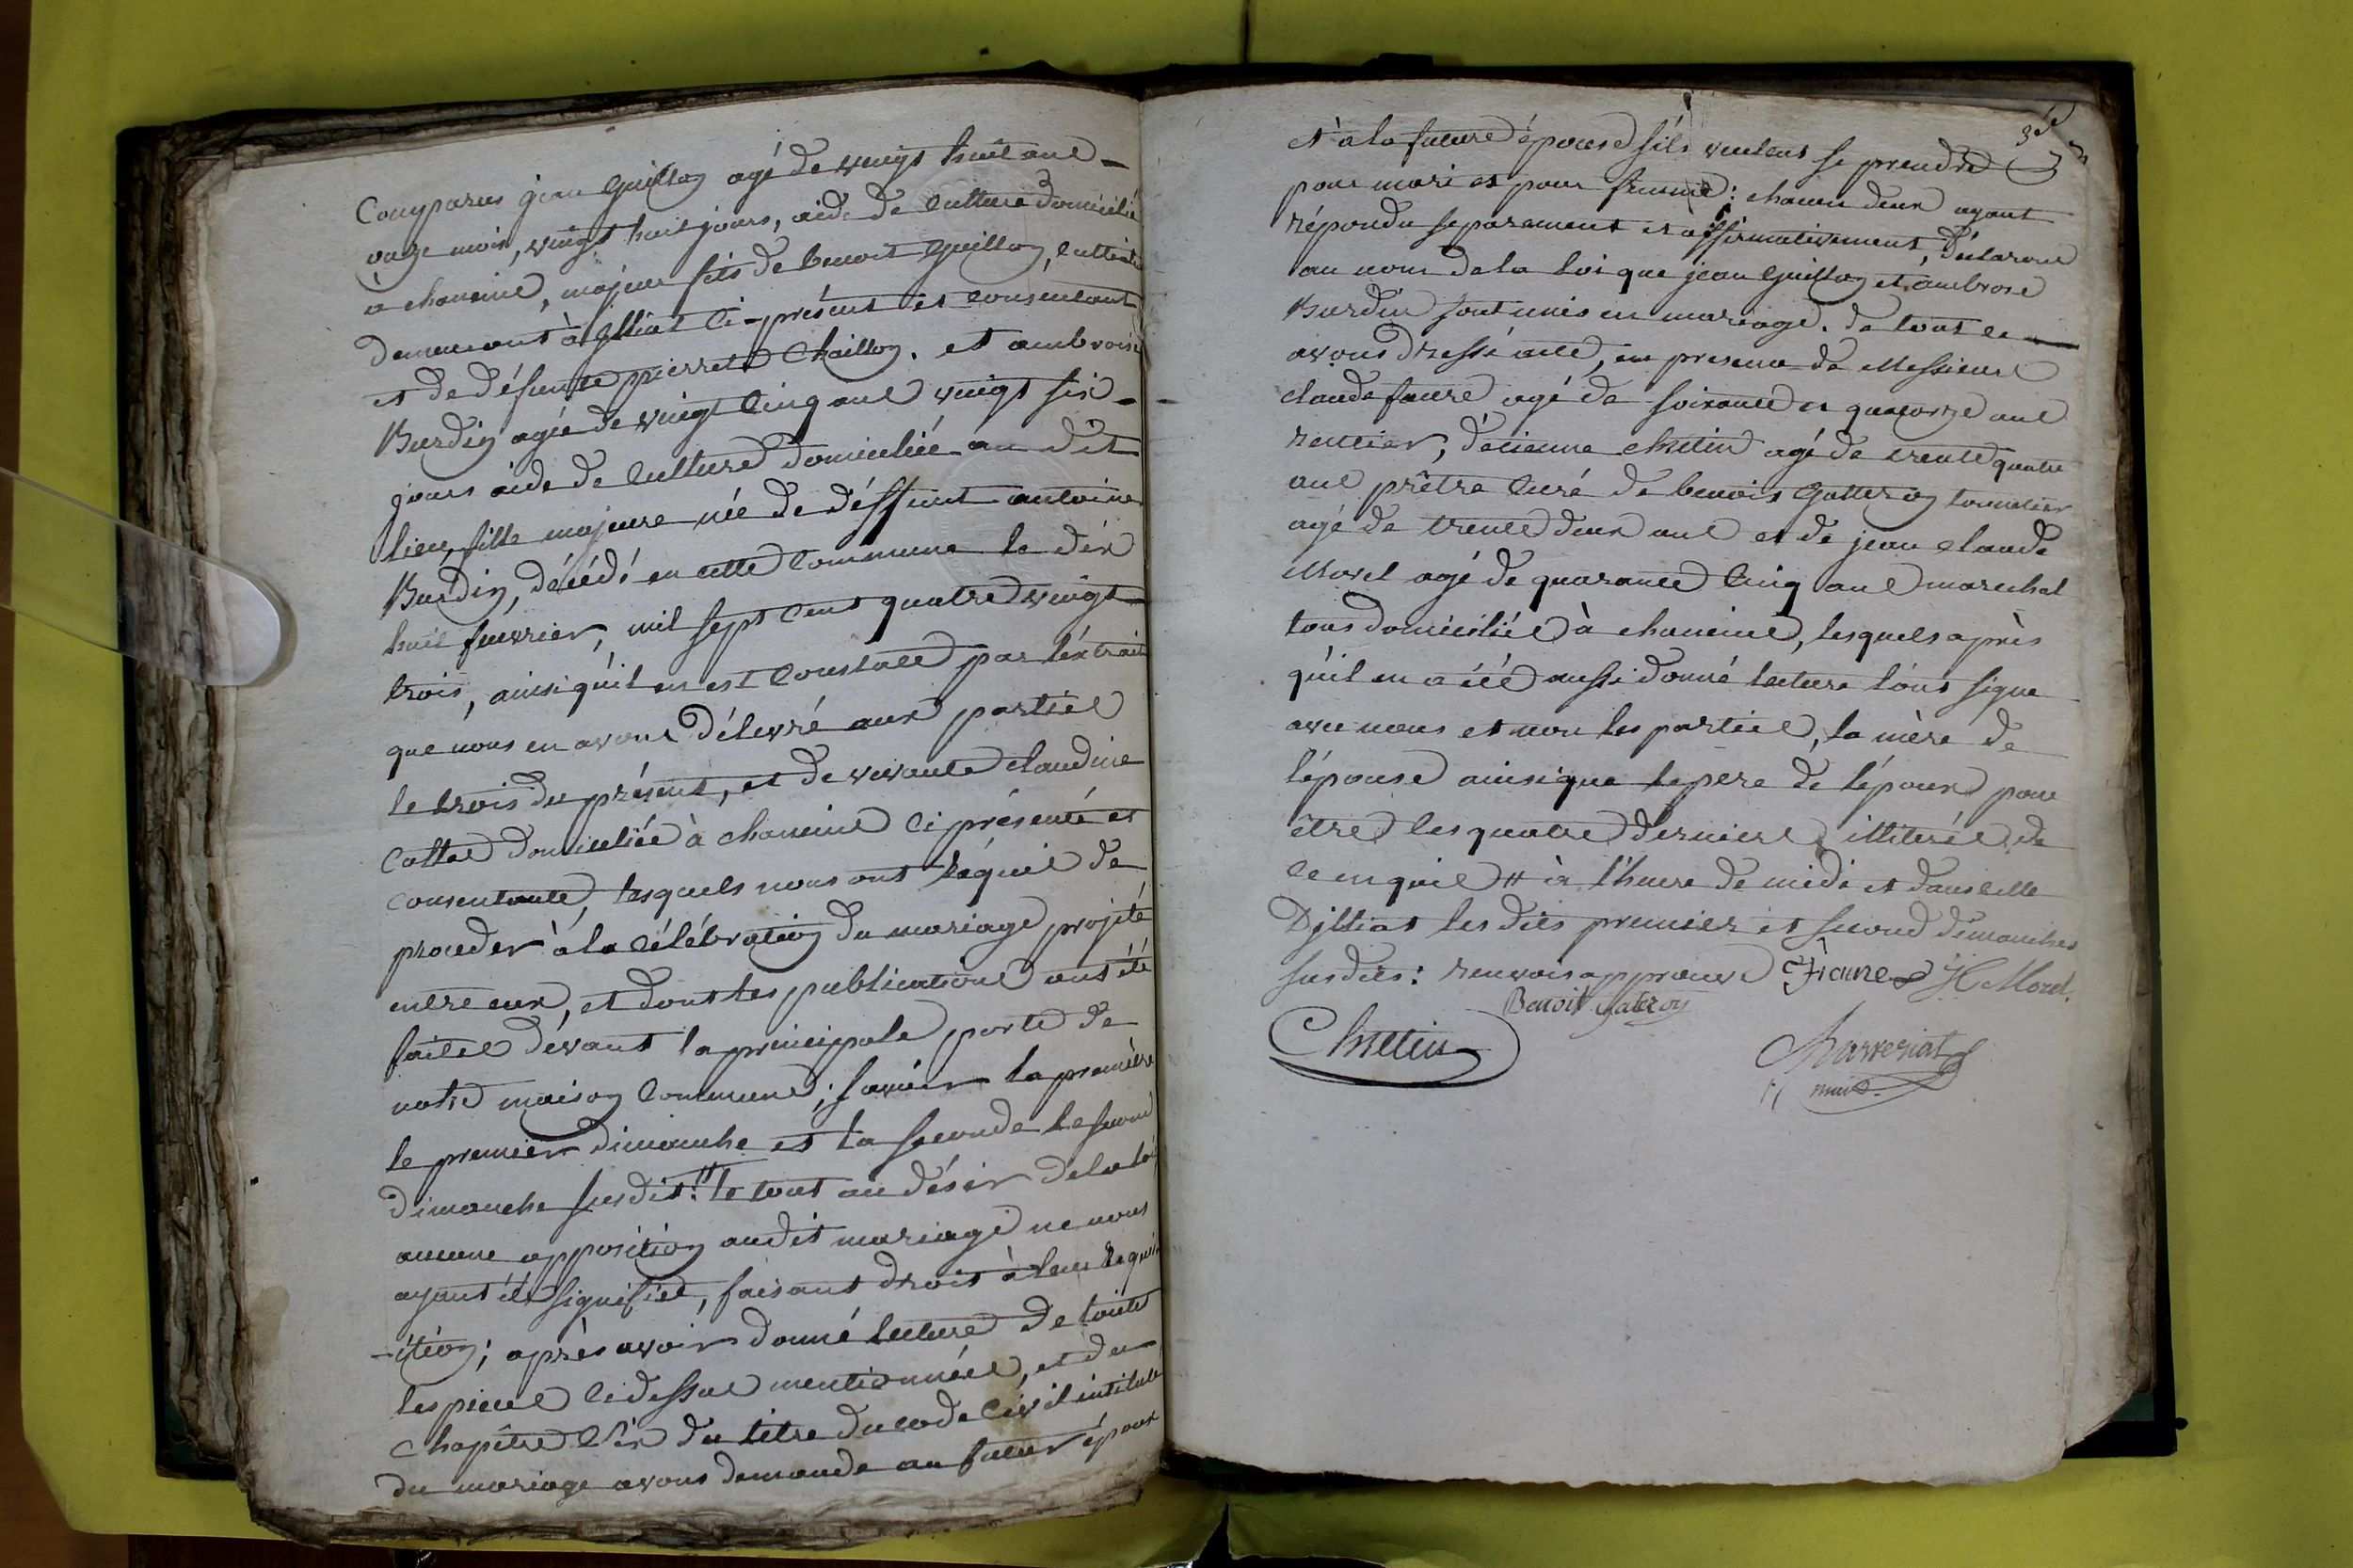 Comparus jean Guillon agé de vingt huit ans
onze mois, vingt huit jours, aide de culture domicilié
à chaneins, majeur fils de benoit Guillon, cultivateur
demeurant à illiat ci-présent et consentant
et de défunte pierrette Chaillon. et ambroise
Burdin agée de vingt cinq ans vingt six
jours aide de culture domiciliée au dit
lieu, fille majeure née de déffunt antoine
Burdin, décédé en cette commune le dix
huit fuevrier, mil sept cent quatre vingt
trois, ainsi qu'il en est constaté par l'éxtrait
que nous en avons délivré aux parties
le trois du présent, et de vivante claudine
cottet domiciliée à chaneins ci présente et
consentante, lesquels nous ont réquis de
proceder à la célébration du mariage projeté
entre eux, et dont les publications ont été
faites dévant la principale porte de
notre maison commune; savoir la première
le premier dimanche et la seconde le second
dimanche susdit: # le tout au désir de la loi
aucune opposition audit mariage ne nous
ayant été signifiée, faisant droit à leur requi
-sition; après avoir donné lecture de toutes
les pieces cidessus mentionnées, et du
chapitre six du titre du code civil intitulé
du mariage avons demandé au futur époux
et à la future épouse s'ils veulent se prendre
pour mari et pour femme: chacun deux ayant
répondu séparement et affirmativement, déclarons
au nom de la loi que jean Guillon et ambroise
Burdin sont unis en mariage. de tout ce
avons dressé acte, en presence de Messieurs
claude faure agé de soixante et quatorze ans
rentier, d'étienne chretin agé de trente quatre
ans prêtre curé de benois Gatteron tonnelier
agé de trente deux ans et de jean claude
Morel agé de quarante cinq ans marechal
tous domiciliés à chaneins, lesquels après
qu'il en a été aussi donné lecture l'ont signé
avec nous et non les parties, la mère de
l'épouse ainsi que le pere de l'époux pour
être les quatre derniers illiterés de
ce enquis # à l'heure de midi et dans celle
D'illiat les dits premier et second dimanches
susdits: renvois approuvé Faure JC Morel.
Benoit Gateron
Chretin
maire